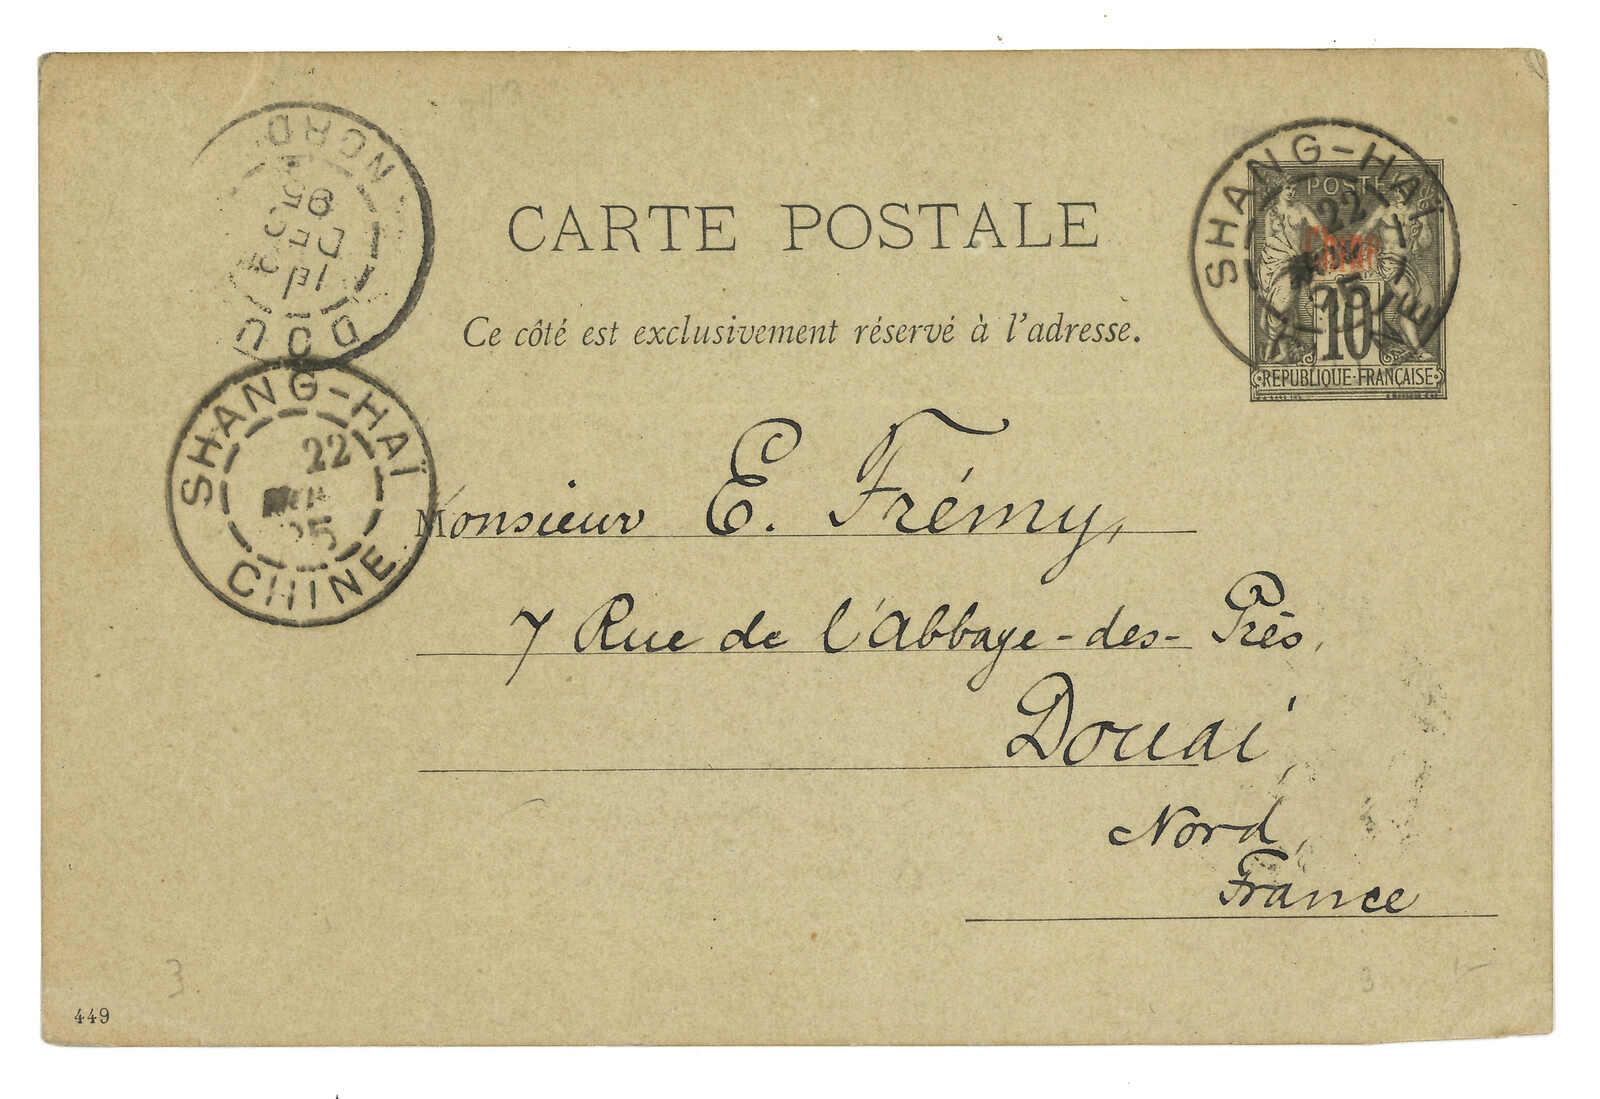 CARTE POSTALE
Ce côté est exclusivement réservé à l'adresse.
POSTE
Chine
10
REPUBLIQUE FRANÇAISE
SHANG-HAÏ
22
CHINE
NORD
95
DEC
DOU
SHANG-HAÏ
22
95
CHINE
Monsieur E. Frémy,
7 Rue de l'Abbaye-des-Près,
Douai,
Nord,
France
3
3
449